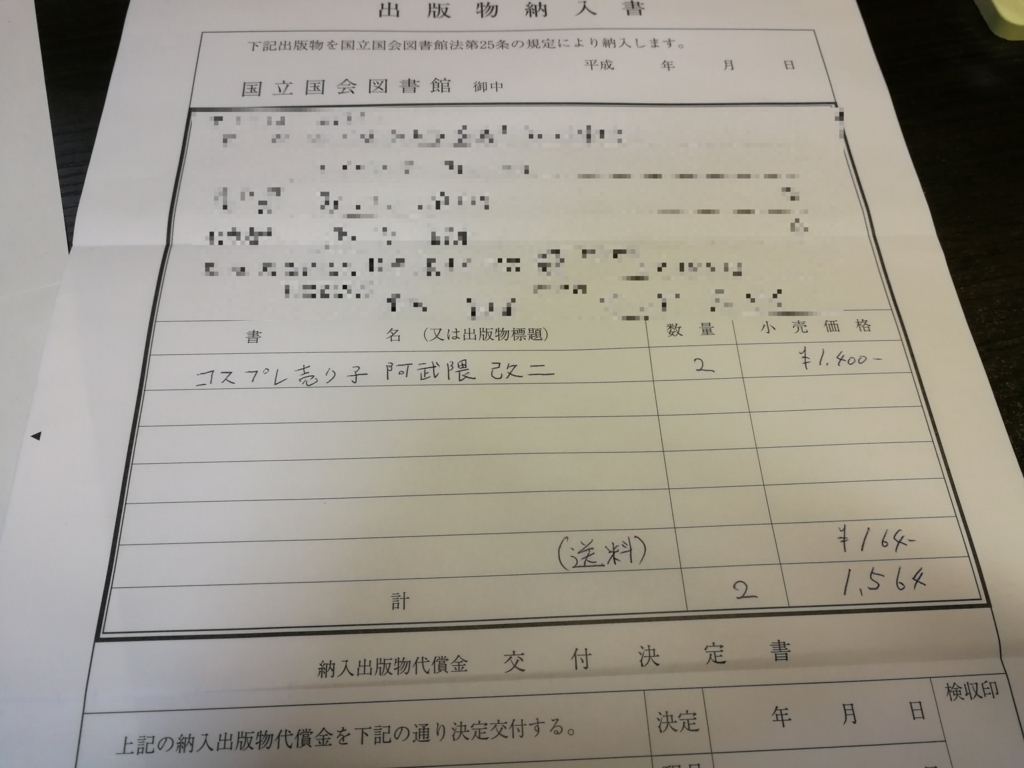 出版物納入書
下記出版物を国立国会図書館法第25条の規定により納入します。
平成 年 月 日
国立国会図書館 御中
書 名 (又は出版物標題) 数量 小売価格
コスプレ売り子 阿武隈 改二 2 ¥1.400-
(送料) ¥164-
計 2 1,564
納入出版物代償金 交付決定書
上記の納入出版物代償金を下記の通り決定交付する。 決定 年 月 日 検収印